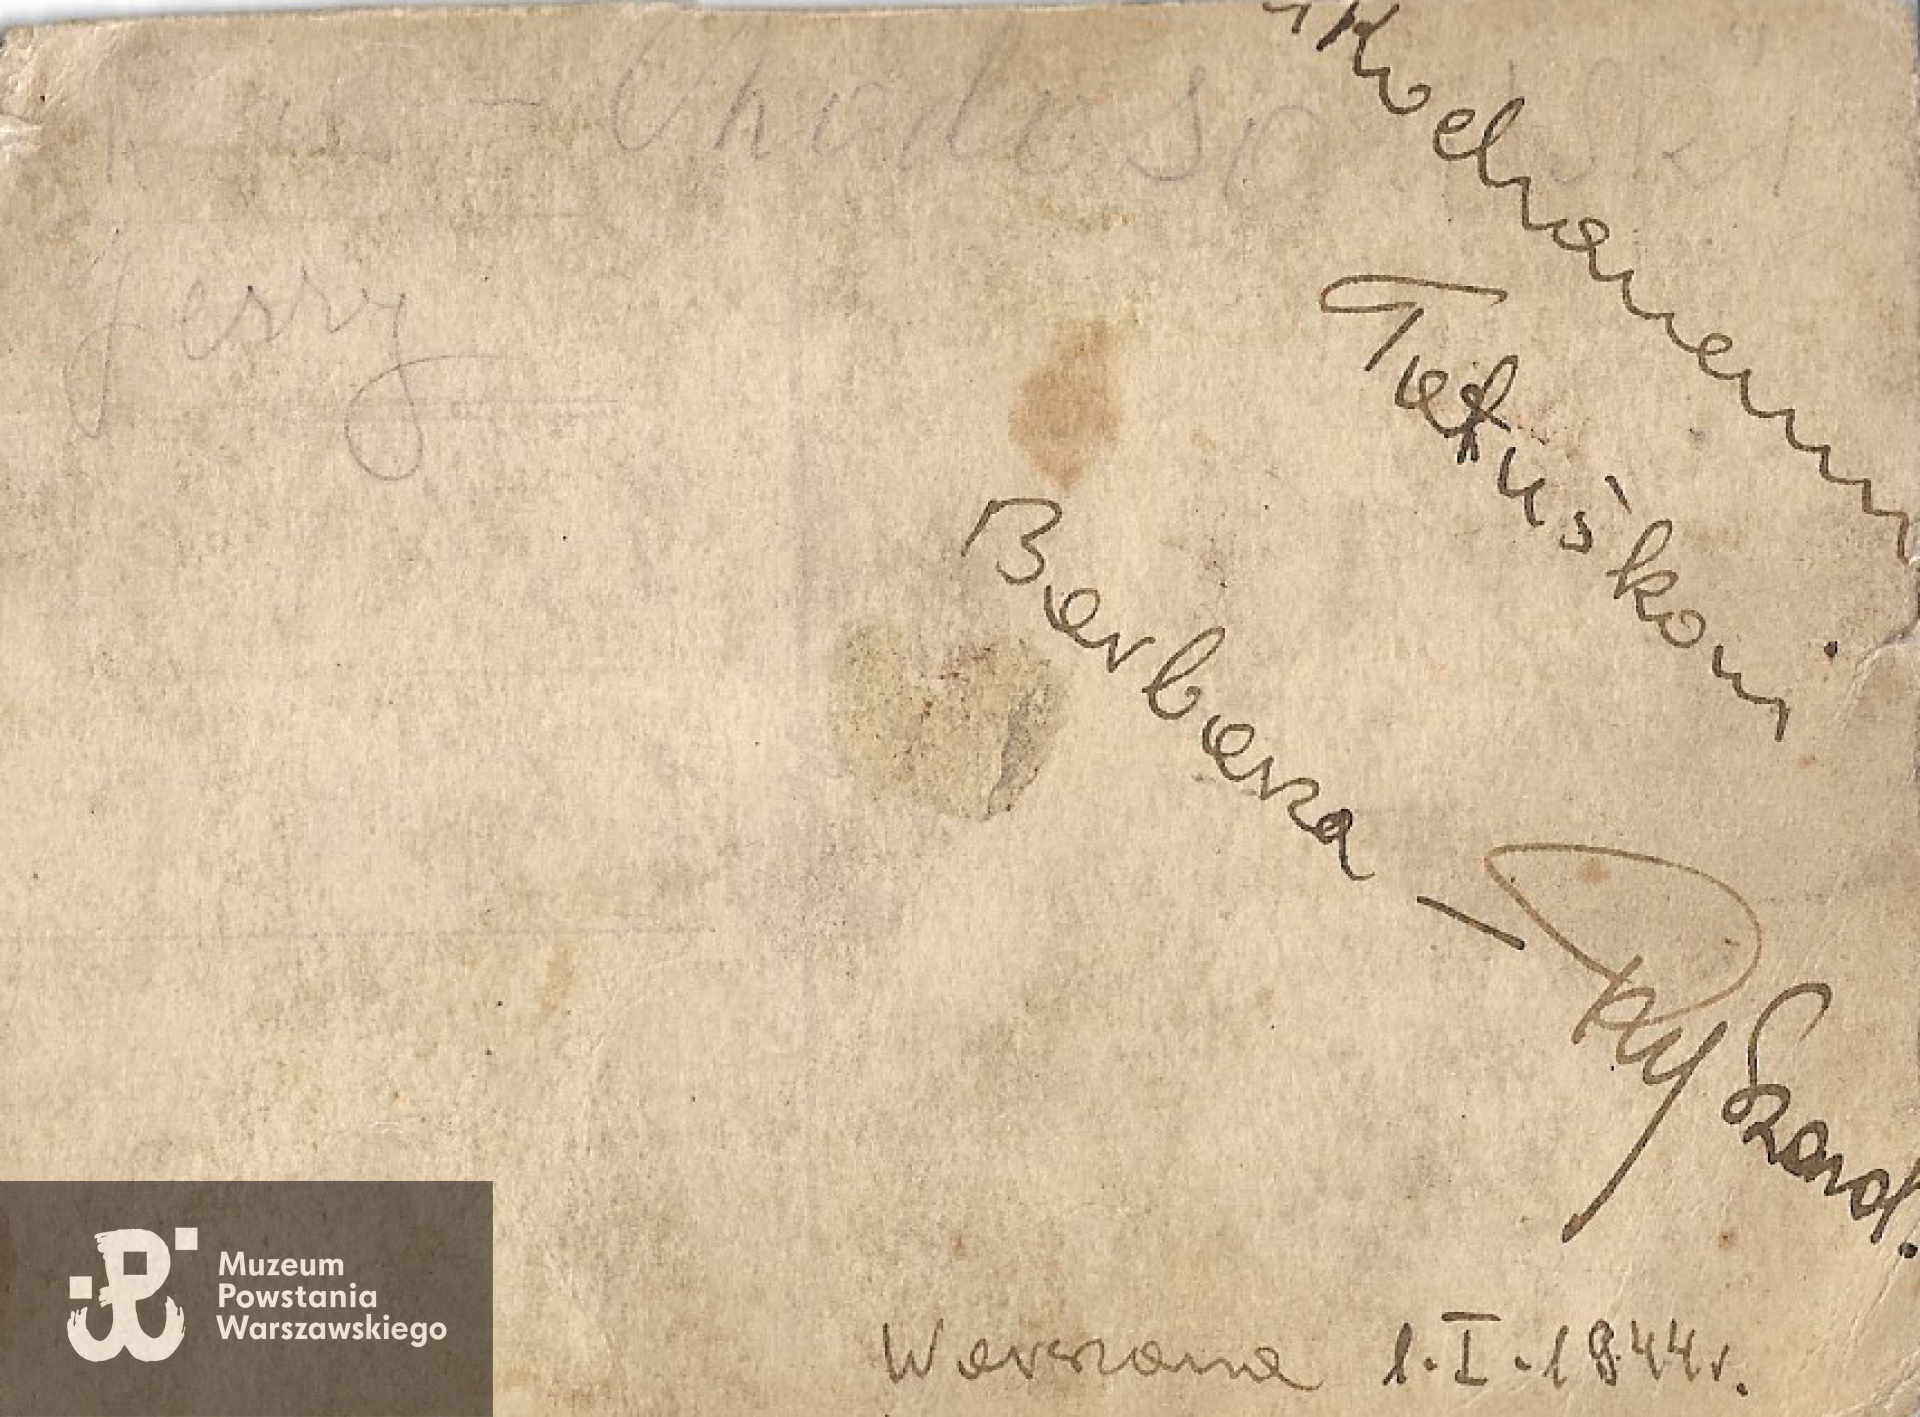 Jerzy
Kochanemu
Tatuśkowi
Barbara – Ryszard.
Warszawa 1.I.1944r.
Muzeum
Powstania
Warszawskiego